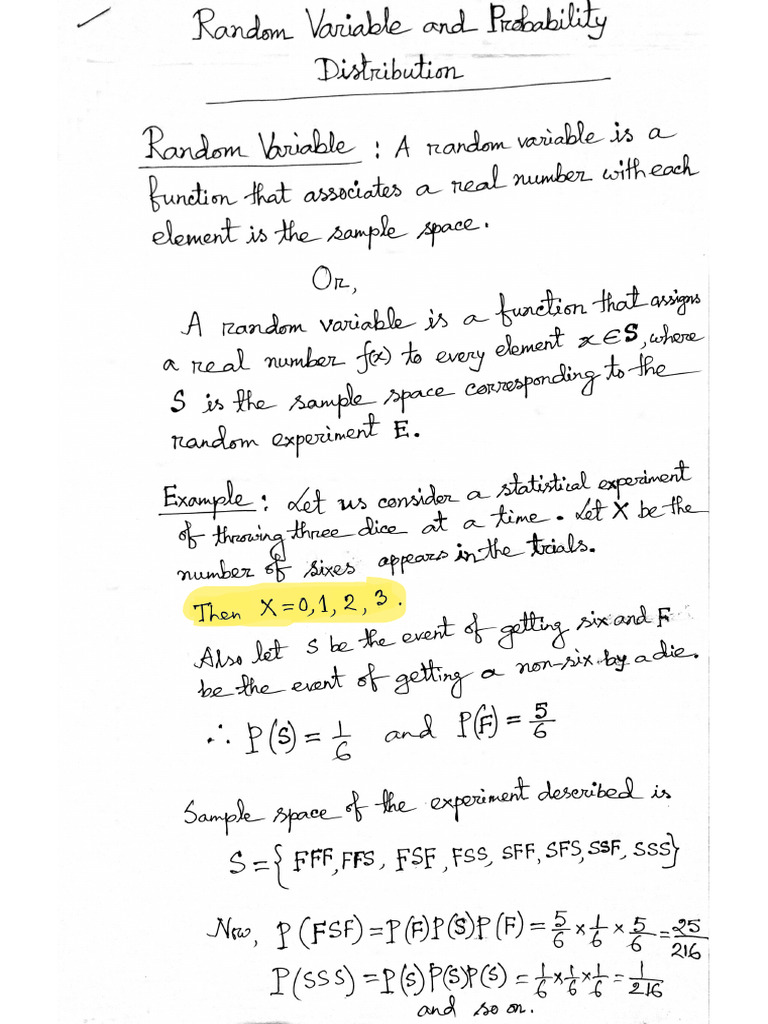 Random Variable and Probability
Distribution
Random Variable : A random variable is a
function that associates a real number with each
element is the sample space.
Or,
A random variable is a function that assigns
a real number f(x) to every element x∈S, where
S is the sample space corresponding to the
random experiment E.
Example : Let us consider a statistical experiment
of throwing three dice at a time. Let X be the
number of sixes appears in the trials.
Then X = 0, 1, 2, 3.
Also let S be the event of getting six and F
be the event of getting a non-six by a die.
∴ P(S) = 1/6 and P(F) = 5/6
Sample space of the experiment described is
S = {FFF, FFS, FSF, FSS, SFF, SFS, SSF, SSS}
Now, P(FSF) = P(F)P(S)P(F) = 5/6 × 1/6 × 5/6 = 25/216
P(SSS) = P(S)P(S)P(S) = 1/6 × 1/6 × 1/6 = 1/216
and so on.